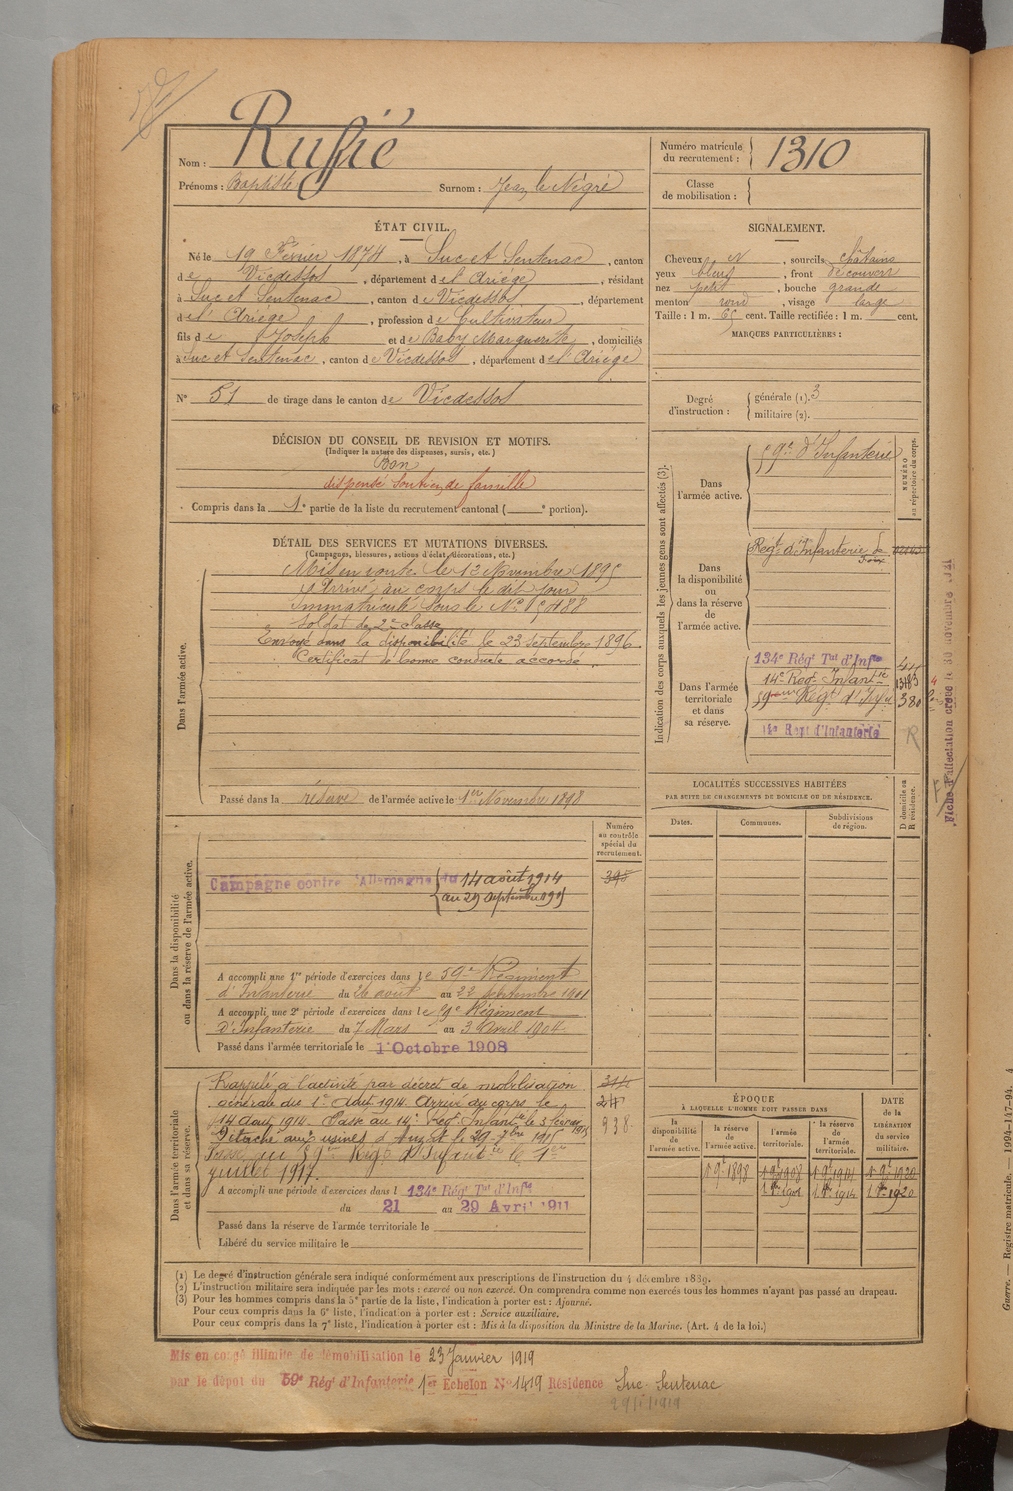 Nom : Rufié
Prénoms : Baptiste Surnom : Jean le Négré
Numéro matricule du recrutement : 1310
Classe de mobilisation :
ÉTAT CIVIL.
Né le 19 Février 1874, à Suc et Sentenac, canton
de Vicdessos, département de l'Ariége, résidant
à Suc et Sentenac, canton de Vicdessos, département
de l'Ariège, profession de Cultivateur
fils de Joseph et de Baby Marguerite, domiciliés
à Suc et Sentenac, canton de Vicdessos, département de l'Ariége
N° 51 de tirage dans le canton de Vicdessos
SIGNALEMENT.
Cheveux N, sourcils châtains
yeux bleus, front découvert
nez petit, bouche grande
menton rond, visage large
Taille : 1 m. 65 cent. Taille rectifiée : 1 m. cent.
MARQUES PARTICULIÈRES :
Degré d'instruction : générale (1). 3
militaire (2).
DÉCISION DU CONSEIL DE REVISION ET MOTIFS.
(Indiquer la nature des dispenses, sursis, etc.)
Bon
dispensé soutien de famille
Compris dans la 1e partie de la liste du recrutement cantonal ( e portion).
DÉTAIL DES SERVICES ET MUTATIONS DIVERSES.
(Campagnes, blessures, actions d'éclat, décorations, etc.)
Dans l'armée active.
Mis en route le 12 Novembre 1895
Arrivé au corps le dit jour
Immatriculé sous le N°
Soldat de 2e classe
Envoyé dans la disponibilité le 23 septembre 1896.
Certificat de bonne conduite accordé.
Passé dans la réserve de l'armée active le 1er Novembre 1898
Indication des corps auxquels les jeunes gens sont affectés (3).
NUMÉRO au répertoire du corps.
Dans l'armée active.
59e d'Infanterie
Dans la disponibilité ou dans la réserve de l'armée active.
Régt d'Infanterie de Foix
Dans l'armée territoriale et dans sa réserve.
134e Régt Tal d'Infie
14e Régt Infantie
59eme Régt d'Inf ie 380
14e Régt d'Infanterie
R
LOCALITÉS SUCCESSIVES HABITÉES
PAR SUITE DE CHANGEMENTS DU DOMICILE OU DE RÉSIDENCE.
Dates. Communes. Subdivisions de région. D domicile ou R résidence.
Dans la disponibilité ou dans la réserve de l'armée active.
Numéro au contrôle spécial du recrutement.
Campagne contre l'Allemagne du 14 août 1914
au 29 septembre 1915
A accompli une 1re période d'exercices dans le 59e Régiment
d'Infanterie du 26 août au 22 septembre 1901
A accompli une 2e période d'exercices dans le 59e Régiment
D'Infanterie du 7 Mars au 3 Avril 1904
Passé dans l'armée territoriale le 1 Octobre 1908
Dans l'armée territoriale et dans sa réserve.
Rappelé à l'activité par décret de mobilisation
générale du 1er Août 1914. Arrivé au corps le
14 août 1914. Passé au 14e Régt Infantie le 3 février 1915
Détaché aux usines d'Auzat le 29 7bre 1915
Passé au 59e Régt d'Infantie le 1er
juillet 1917.
938
A accompli une période d'exercices dans l 134e Régt Tal d'Infie
du 21 au 29 Avril 1911
Passé dans la réserve de l'armée territoriale le
Libéré du service militaire le
ÉPOQUE
À LAQUELLE L'HOMME DOIT PASSER DANS
DATE de la LIBÉRATION du service militaire.
la disponibilité de l'armée active. la réserve de l'armée active. l'armée territoriale. la réserve de l'armée territoriale.
(1) Le degré d'instruction générale sera indiqué conformément aux prescriptions de l'instruction du 4 décembre 1889.
(2) L'instruction militaire sera indiquée par les mots : exercé ou non exercé. On comprendra comme non exercés tous les hommes n'ayant pas passé au drapeau.
(3) Pour les hommes compris dans la 5e partie de la liste, l'indication à porter est : Ajourné.
Pour ceux compris dans la 6e liste, l'indication à porter est : Service auxiliaire.
Pour ceux compris dans la 7e liste, l'indication à porter est : Mis à la disposition du Ministre de la Marine. (Art. 4 de la loi.)
Mis en congé illimité de démobilisation le 23 Janvier 1919
par le dépôt du 59e Régt d'Infanterie 1er Échelon N° 1419 Résidence Suc-Sentenac
29/1/1919
Guerre. — Registre matricule. — 1994-147-94. 4